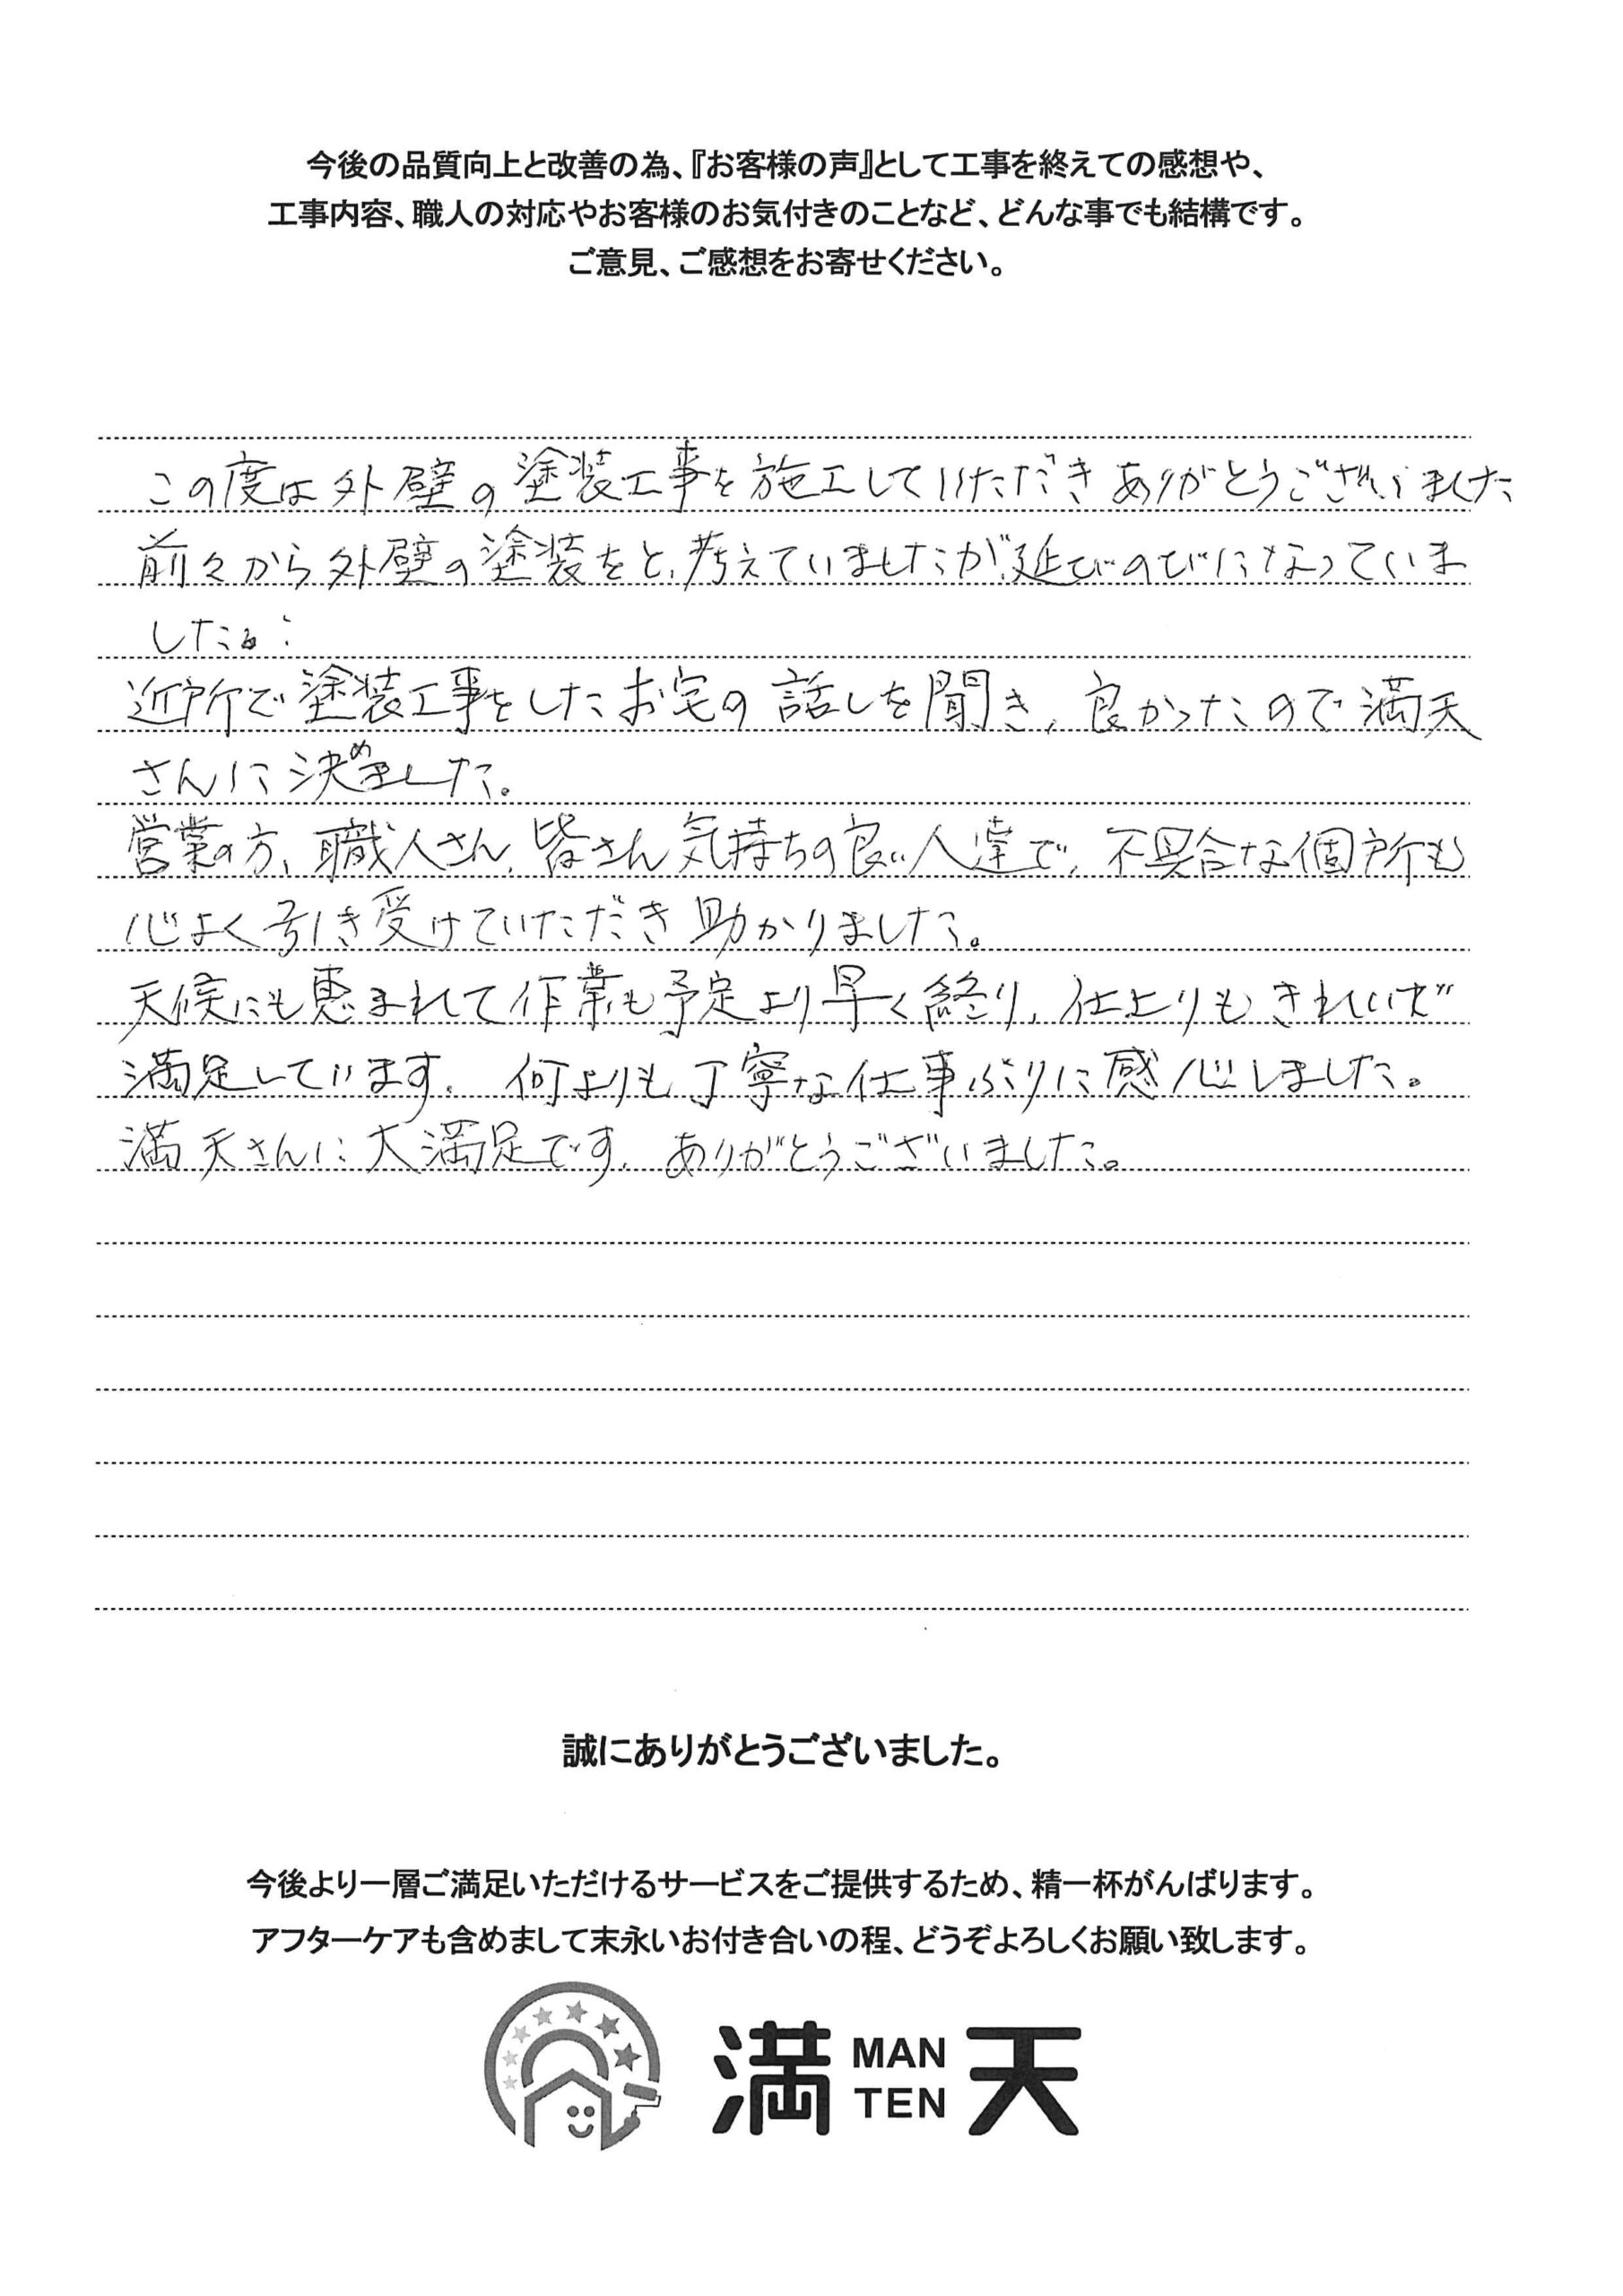 今後の品質向上と改善の為、『お客様の声』として工事を終えての感想や、
工事内容、職人の対応やお客様のお気付きのことなど、どんな事でも結構です。
ご意見、ご感想をお寄せください。
この度は外壁の塗装工事を施工していただきありがとうございました
前々から外壁の塗装をと、考えていましたが、延びのびになっていま
した。
近所で塗装工事をしたお宅の話しを聞き、良かったので満天
さんに決めました。
営業の方、職人さん、皆さん気持ちの良い人達で、不具合な個所も
心よく引き受けていただき助かりました。
天候にも恵まれて作業も予定より早く終り、仕上りもきれいで
満足しています。何よりも丁寧な仕事ぶりに感心しました。
満天さんに大満足です。ありがとうございました。
誠にありがとうございました。
今後より一層ご満足いただけるサービスをご提供するため、精一杯がんばります。
アフターケアも含めまして末永いお付き合いの程、どうぞよろしくお願い致します。
満 MAN TEN 天